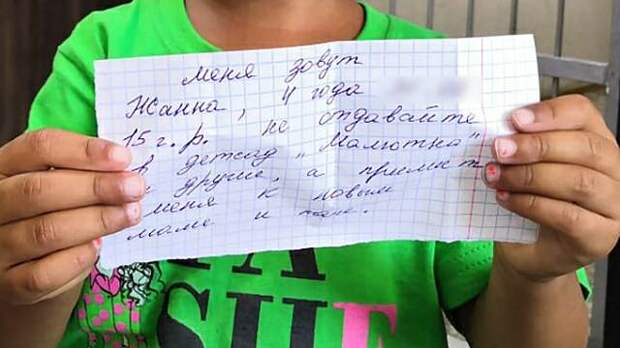 меня зовут
Жанна, 4 года
15 г. р. не отдавайте
в детсад "Малютка"
и другие, а
меня к новым
маме и папе.
SHE